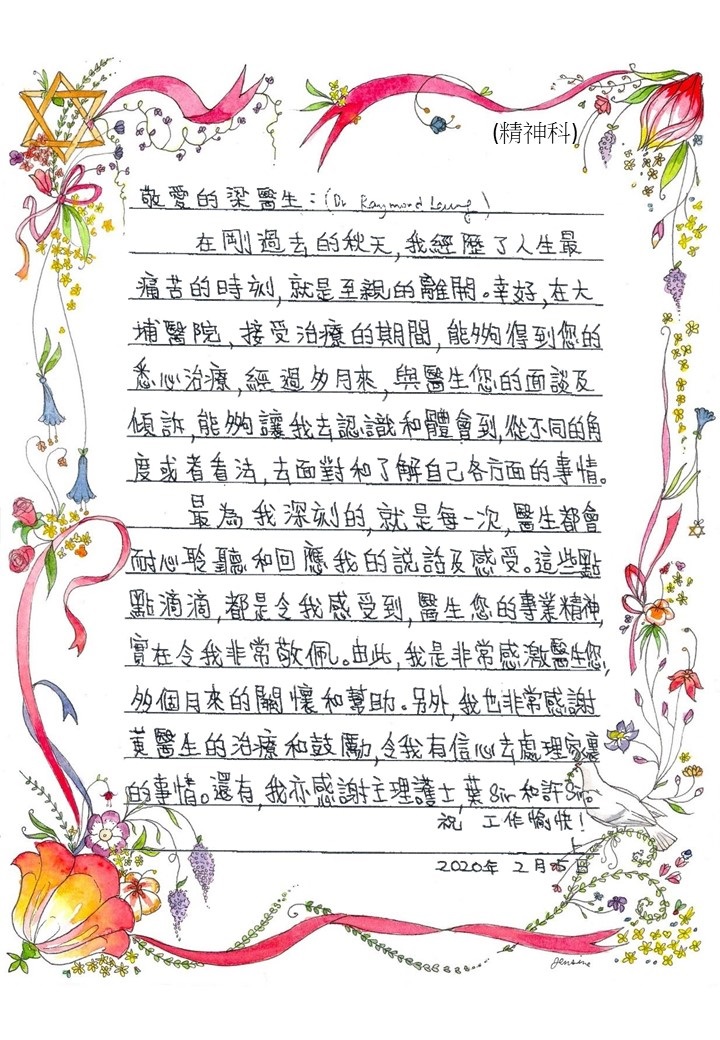 (精神科)
敬愛的梁醫生：(Dr Raymond Leung)
在剛過去的秋天，我經歷了人生最
痛苦的時刻，就是至親的離開。幸好，在大
埔醫院，接受治療的期間，能夠得到您的
悉心治療，經過多月來，與醫生您的面談及
傾訴，能夠讓我去認識和體會到，從不同的角
度或者看法，去面對和了解自己各方面的事情。
最為我深刻的，就是每一次，醫生都會
耐心聆聽和回應我的說話及感受。這些點
點滴滴，都是令我感受到，醫生您的專業精神，
實在令我非常敬佩。由此，我是非常感激醫生您，
多個月來的關懷和幫助。另外，我也非常感謝
黃醫生的治療和鼓勵，令我有信心去處理家裏
的事情。還有，我亦感謝主理護士，葉Sir和許Sir。
祝 工作愉快！
上
2020年 2月 日
Jensine